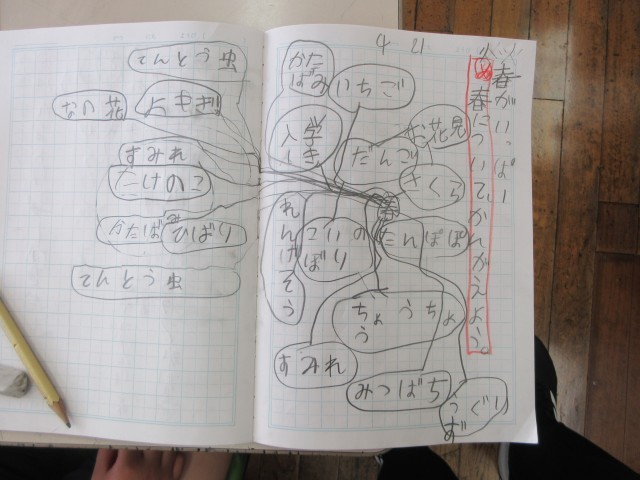 4 21
春がいっぱい
め 春についてかんがえよう。
かたばみ
いちご
お花見
入学しき
だんご
さくら
春
れんげそう
こいのぼり
たんぽぽ
ちょうちょう
すみれ
みつばち
てんとう虫
なの花
よもぎ
すみれ
たけのこ
かたばみ
ひばり
てんとう虫